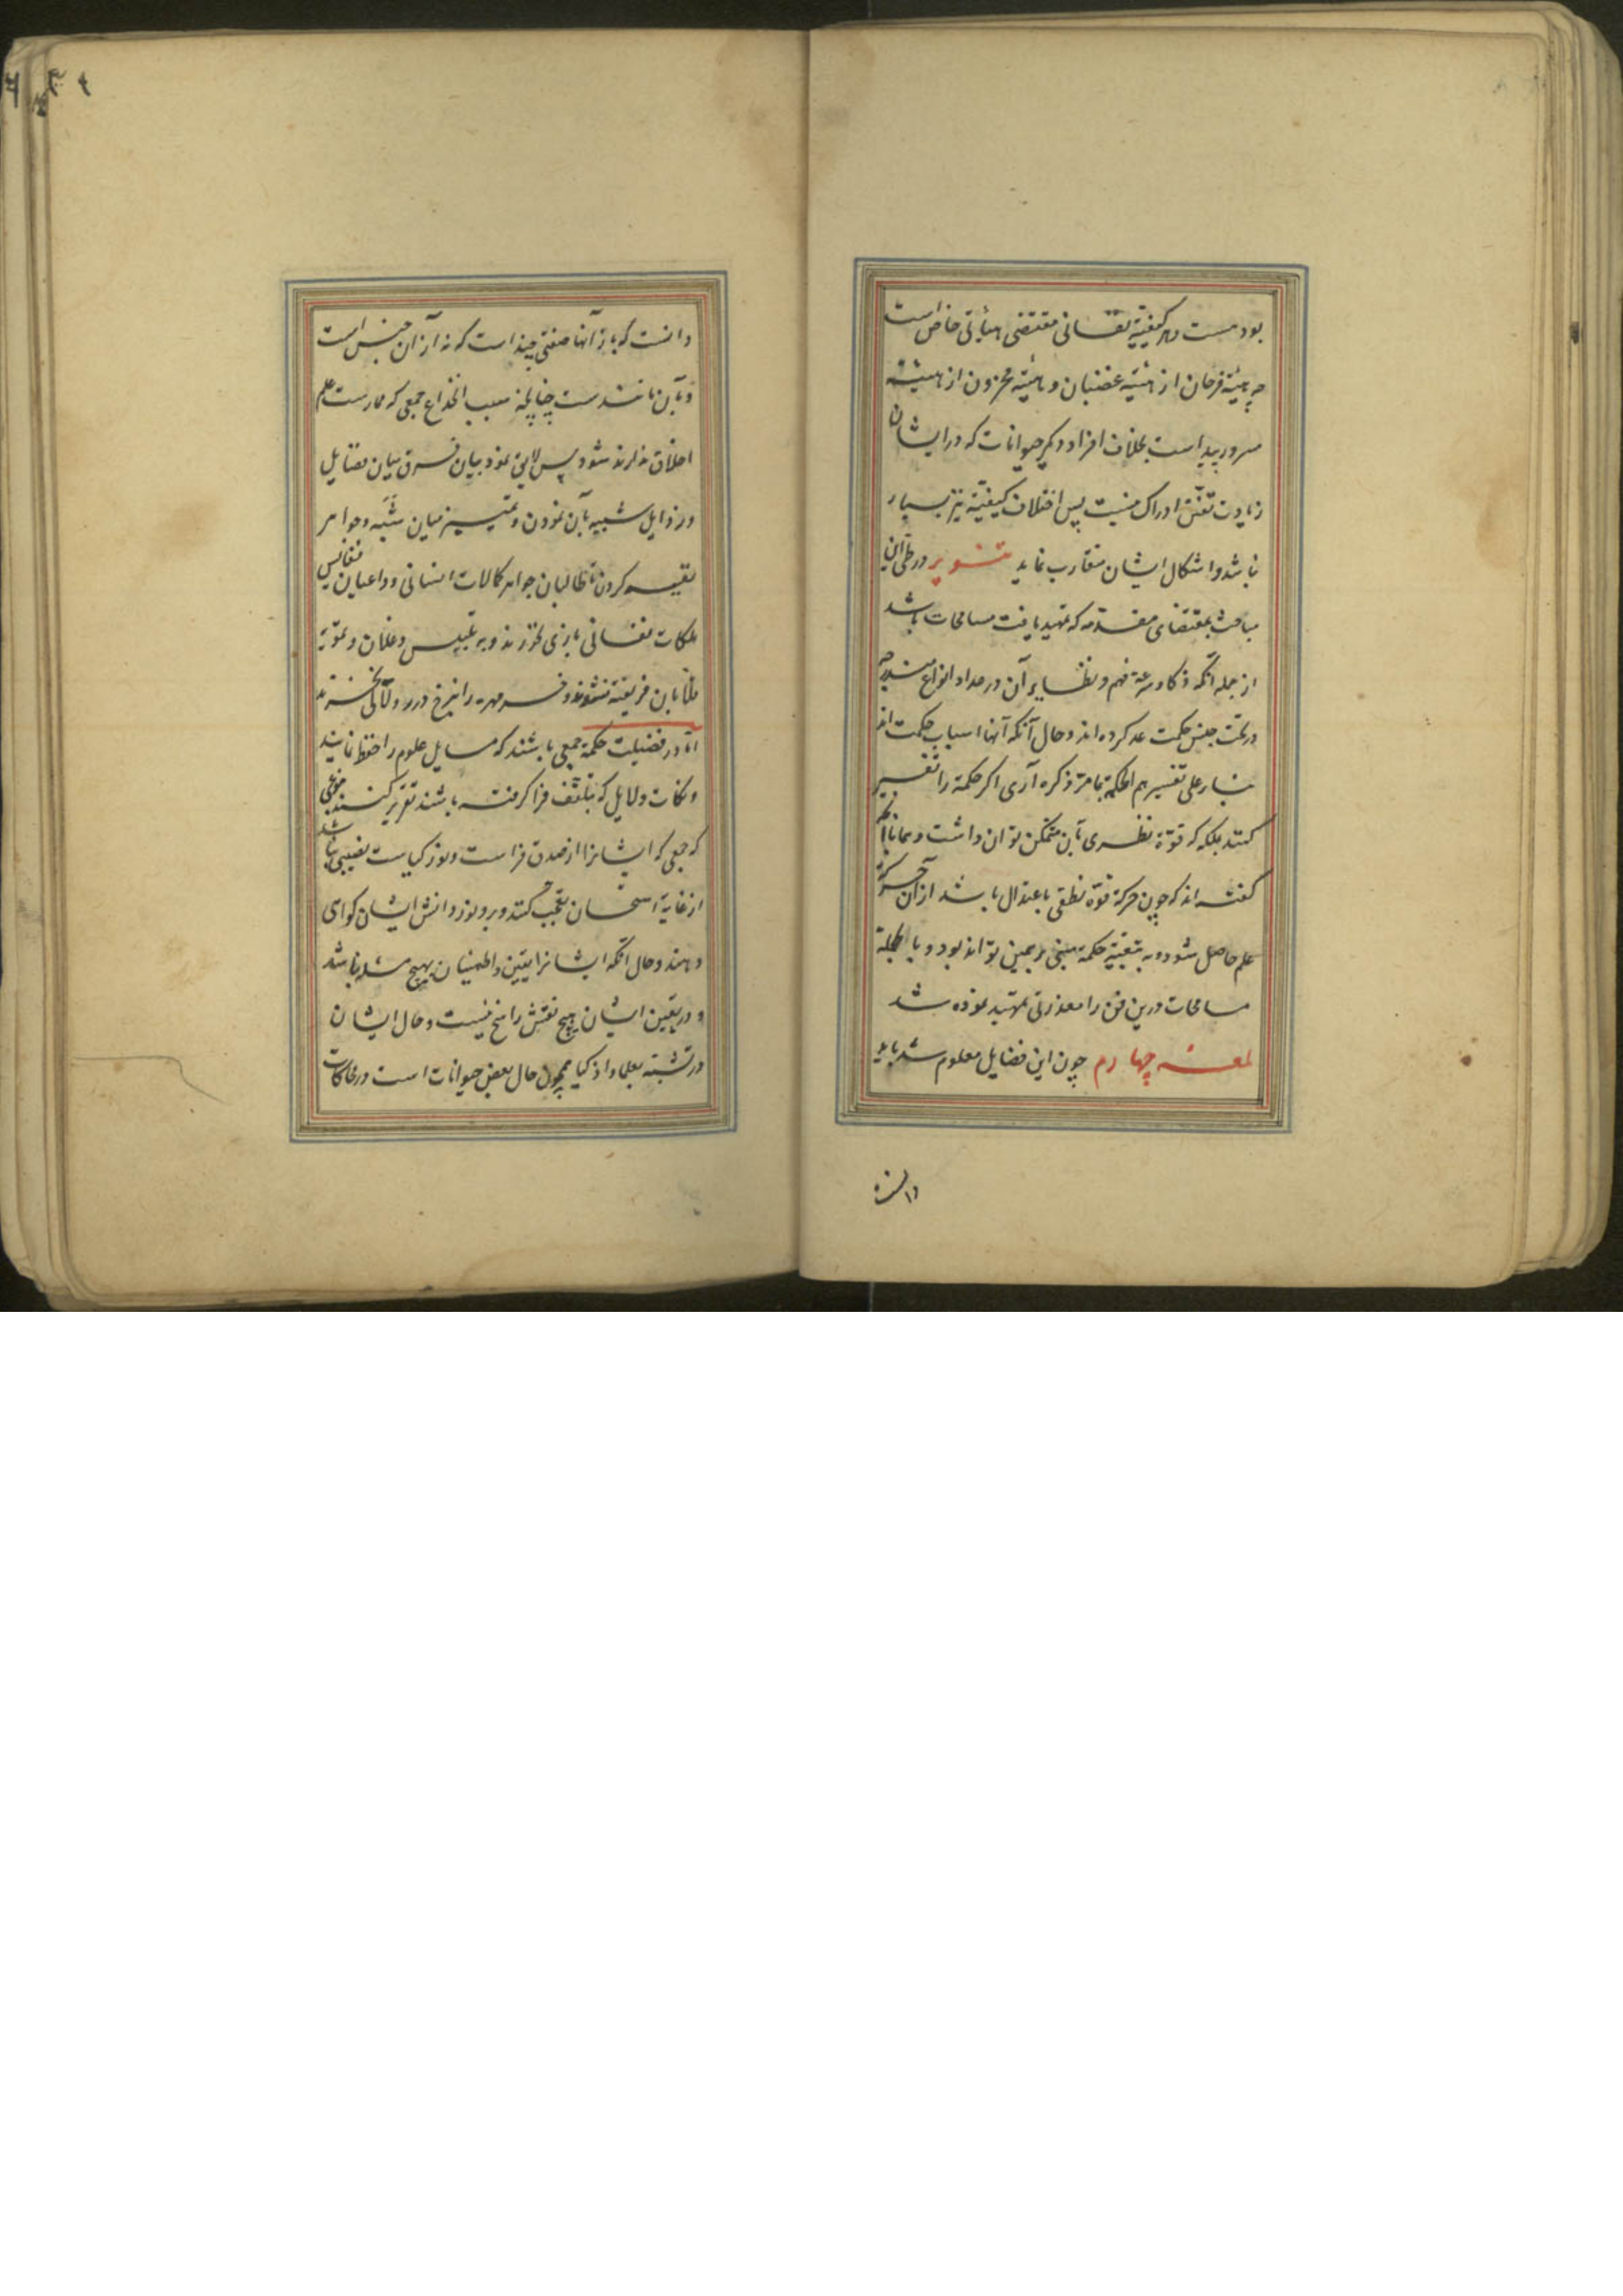 بود مست و هر کیفیته نفسانی مقتضی هیأتی خاص است
چه هیئته فرحان از هیئته غضبان و هیئته محزون از هیئته
مسرور پیداست بخلاف افراد دیگر حیوانات که در ایشان
زیادت تفنن ادراک نیست پس اختلاف کیفیته نیز بسیار
نباشد و اشکال ایشان متقارب نماید تنویر در طی این
مباحث بمقتضای مقدمه که تمهید یافت مسامحات باشد
از جمله آنکه ذکا و سرعة فهم و نظایر آن در عداد انواع مندرجه
در تحت جنس حکمت عد کرده اند و حال آنکه آنها اسباب حکمت اند
بنا بر علی تفسیرهم الحکمة بما مر ذکره آری اگر حکمة را تفسیر
کنند بملکه که قوة نظری بآن متمکن توان داشت و همانا آنکه
گفته اند که چون حرکة قوة نطقی باعتدال باشد از آن حرکة
علم حاصل شود و به تبعیة حکمة مبنی بر همین تواند بود و بالجمله
مسامحات درین فن را معذرتی تمهید نموده شد
لمعه چهارم چون این فضایل معلوم شد باید
دانست
دانست که بازای آنها صفتی چند است که نه از آن جنس است
و بآن مانندست چنانچه سبب انخداع جمعی که ممارست علم
اخلاق ندارند شود پس لایق نمود بیان فرق میان فضایل
و رذایل شبیه بآن نمودن و تمییز میان شبه و جواهر
نفیسه کردن تا طالبان جواهر کمالات انسانی و داعیان نفایس
ملکات نفسانی بازی نخورند و به تلبیس و غلان و تمویه
فتانان فریفته نشوند و خرمهره را بنرخ درر و لآلی نخرند
اما در فضیلت حکمة جمعی باشند که مسایل علوم را حفظ نمایند
و نکات و دلایل که بتلقف فرا گرفته باشند تقریر کنند بنوعی
که جمعی که ایشانرا از صدق فراست و نور کیاست نصیبی نباشد
از غایة استحسان تعجب کنند و بر وفور دانش ایشان گواهی
دهند و حال آنکه ایشانرا یقین و اطمینان بهیچ مسئله نباشد
و در یقین ایشان هیچ نقش راسخ نیست و حال ایشان
در تشبه بعلما و اذکیا همچون حال بعض حیوانات است در محاکات